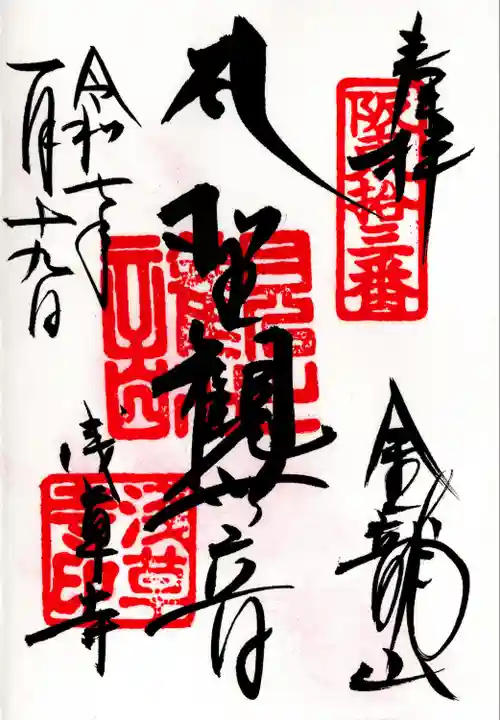 奉拝
坂東拾三番
金龍山
聖観世音
浅草寺
浅草寺印
令和七年
一月十九日